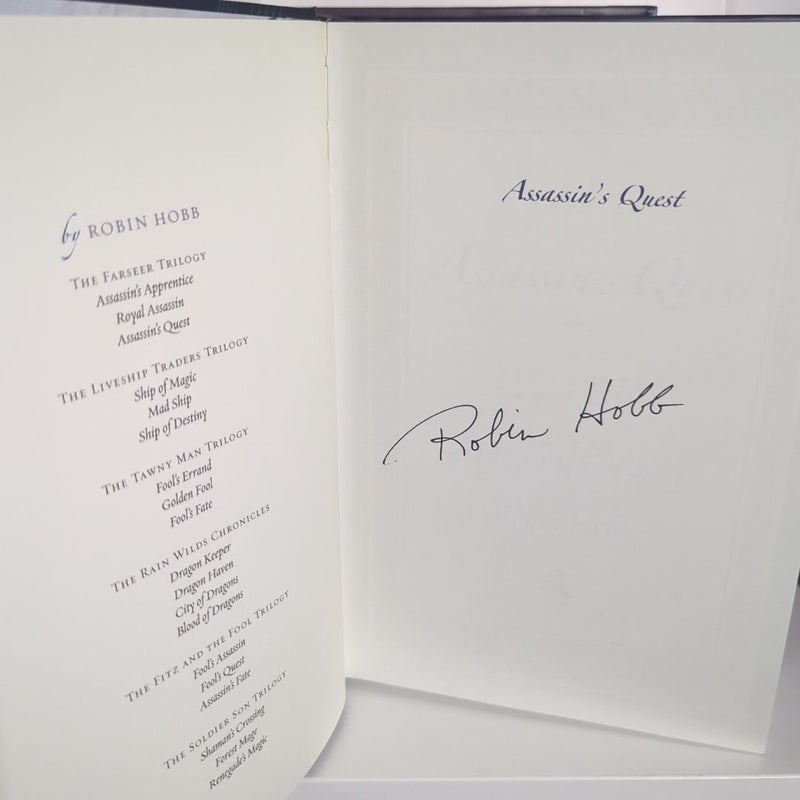 by ROBIN HOBB
THE FARSEER TRILOGY
Assassin's Apprentice
Royal Assassin
Assassin's Quest
THE LIVESHIP TRADERS TRILOGY
Ship of Magic
Mad Ship
Ship of Destiny
THE TAWNY MAN TRILOGY
Fool's Errand
Golden Fool
Fool's Fate
THE RAIN WILDS CHRONICLES
Dragon Keeper
Dragon Haven
City of Dragons
Blood of Dragons
THE FITZ AND THE FOOL TRILOGY
Fool's Assassin
Fool's Quest
Assassin's Fate
THE SOLDIER SON TRILOGY
Shaman's Crossing
Forest Mage
Renegade's Magic
Assassin's Quest
Robin Hobb